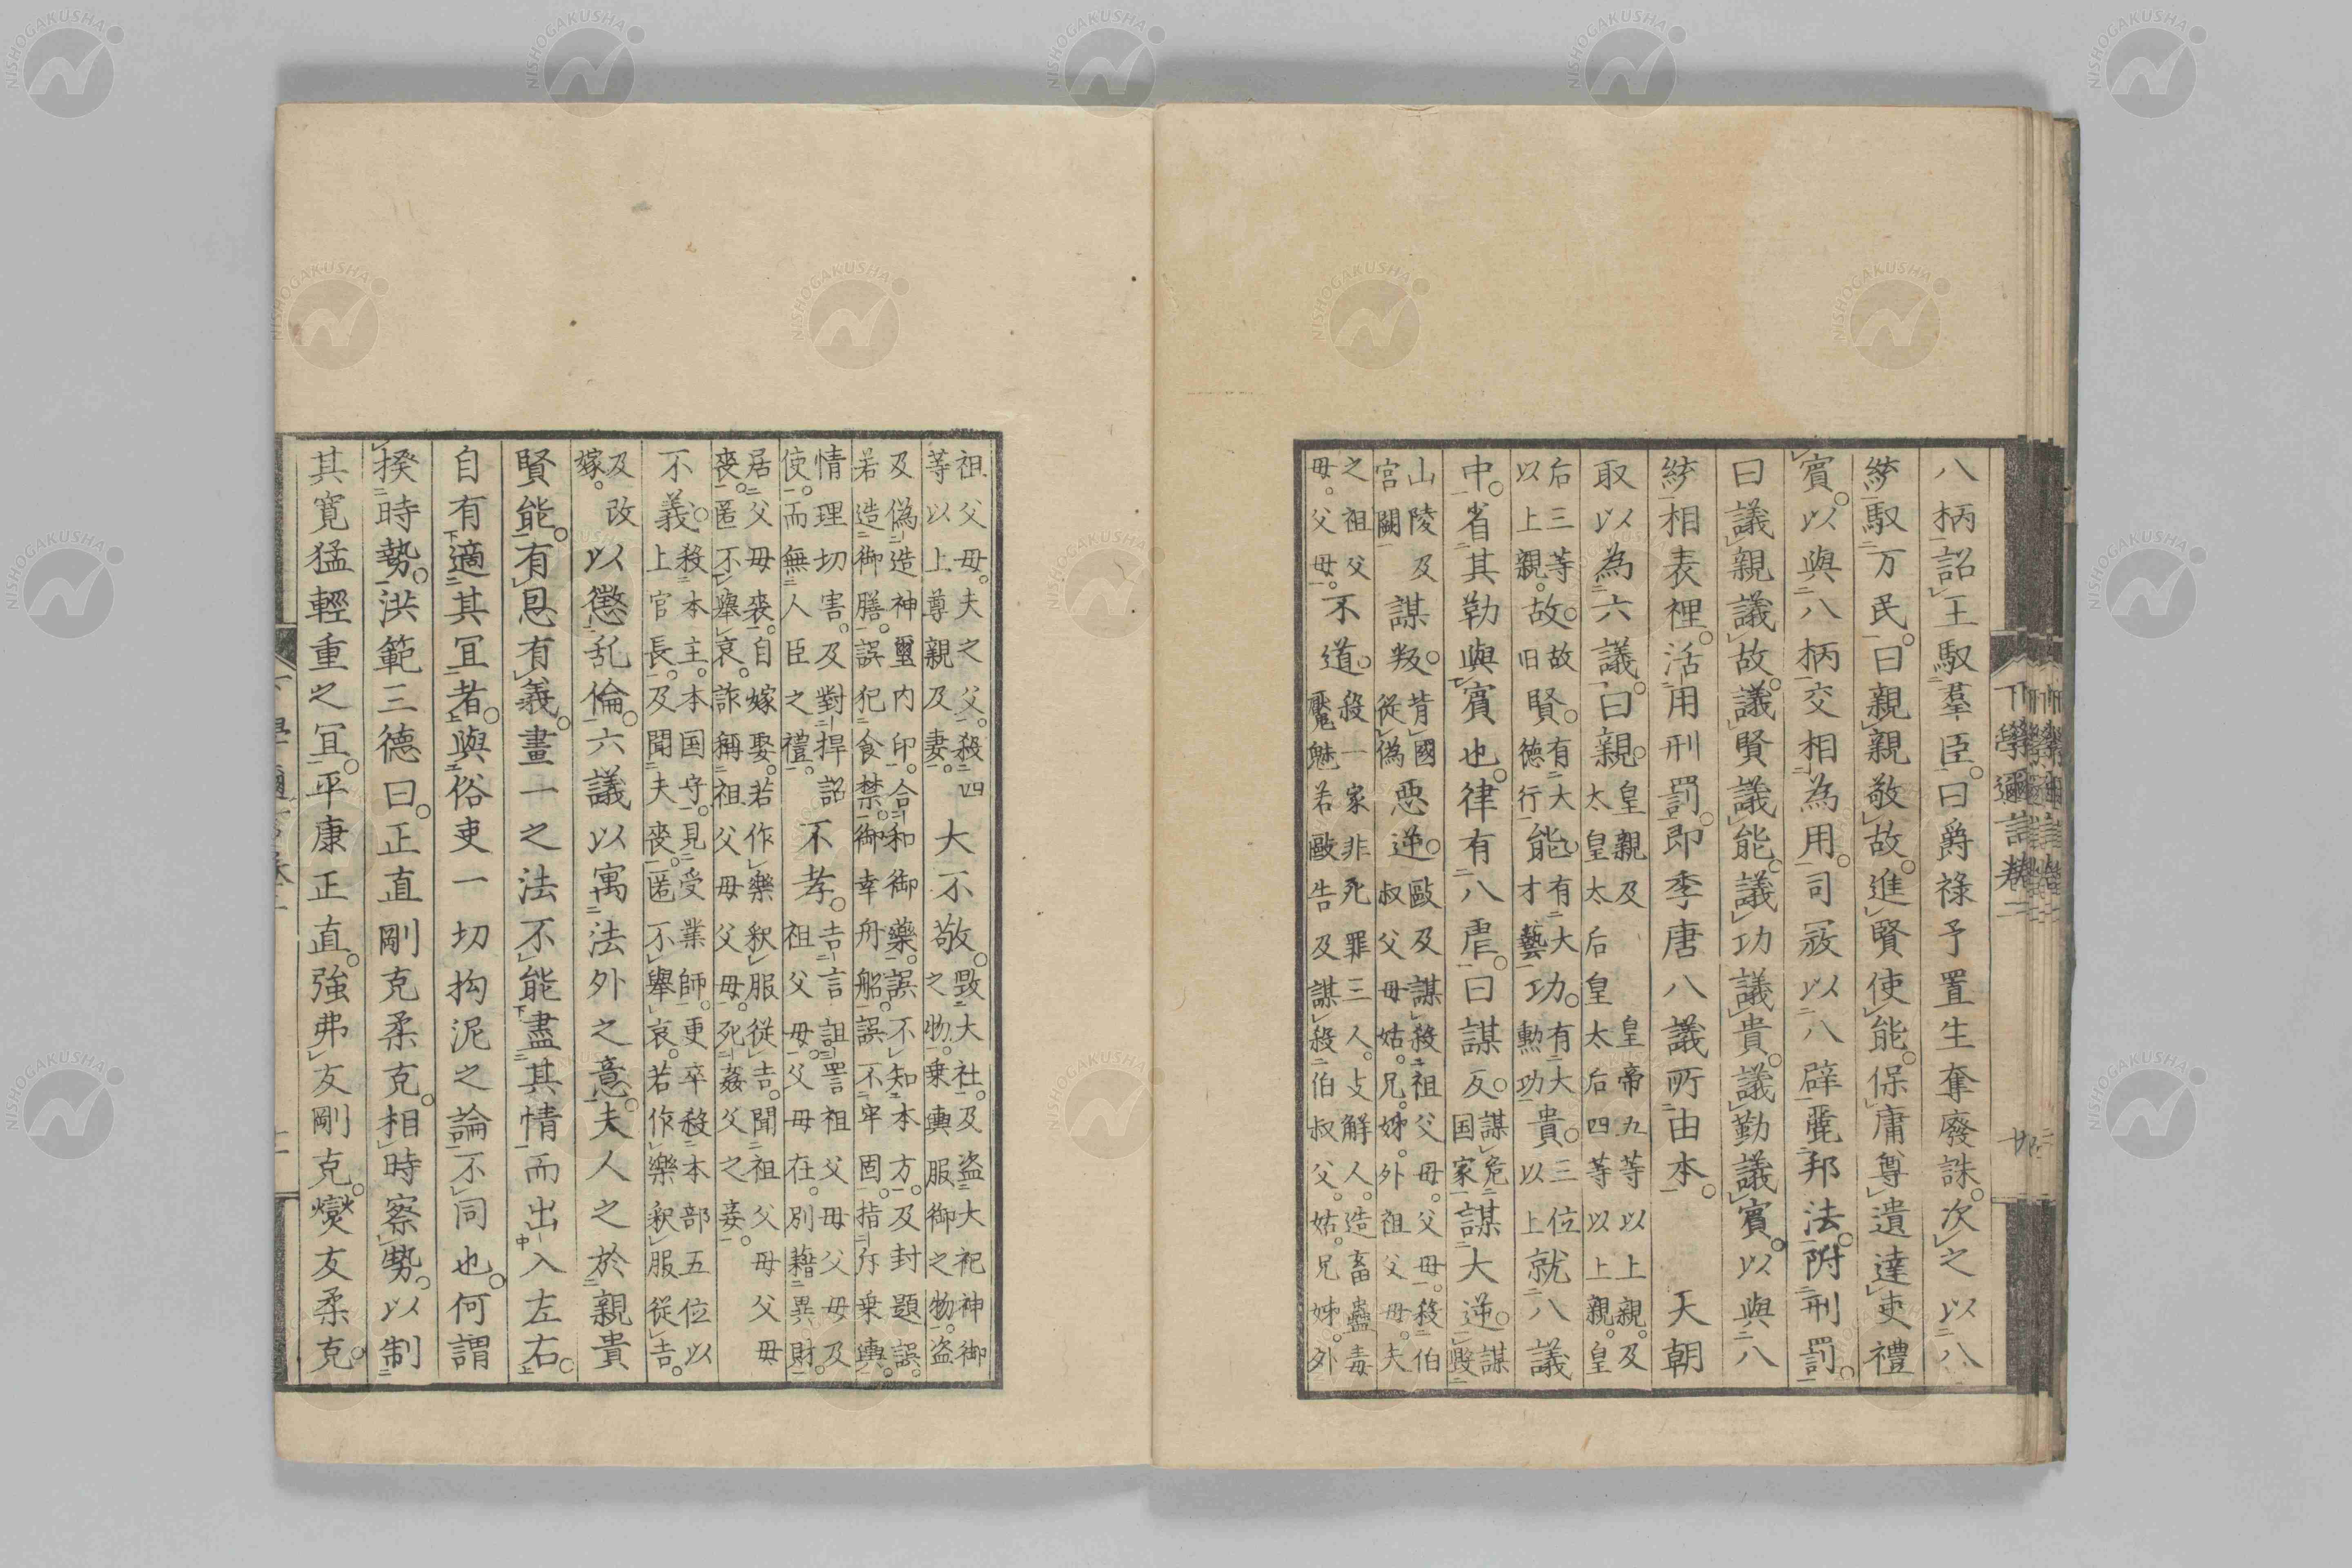 八柄詔王馭羣臣。曰爵祿予置生奪廢誅。次之以八
綂馭万民。曰親親敬故。進賢使能。保庸尊遺達吏禮
賓。以與八柄交相為用。司冦以八辟麗邦法。附刑罰。
曰議親議故。議賢議能。議功議貴。議勤議賓。以與八
綂相表裡。活用刑罰。即季唐八議所由本。天朝
取以為六議。曰親。皇親及皇帝九等以上親。及太皇太后皇太后四等以上親。皇
后三等以上親。故。故旧賢。有大德行能。有大才藝功。有大勲功貴。三位以上就八議
中。省其勒與賓也。律有八虐。曰謀反。謀危国家謀大逆。謀毀
山陵及宮闕謀叛。背國従偽悪逆。毆及謀殺祖父母。父母。殺伯叔父母姑。兄。姊。外祖父母。夫
之祖父母。父母。不道。殺一家非死罪三人。支解人。造畜蠱毒魘魅若毆告及謀殺伯叔父。姑。兄姊。外
祖父母。夫之父。殺四等以上尊親及妻。大不敬。毀大社。及盗大祀神御之物。乗輿服御之物。盗
及偽造神璽内印。合和御藥。誤不知本方。及封題誤。若造御膳。誤犯食禁。御幸舟船。誤不牢固。指斥乗輿。
情理切害。及對捍詔使。而無人臣之禮。不孝。告言詛詈祖父母父母及祖父母。父母在。別藉異財。
居父母喪。自嫁娶。若作樂釈服従吉。聞祖父母父母喪。匿不擧哀。詐稱祖父母父母。死姦父之妾。
不義。殺本主。本国守。見受業師。更卒殺本部五位以上官長。及聞夫喪。匿不擧哀。若作樂釈服従吉。
及改嫁。以懲乱倫。六議以寓法外之意。夫人之於親貴
賢能。有恩有義。畫一之法不能盡其情而出入左右。
自有適其冝者。與俗吏一切拘泥之論不同也。何謂
揆時勢。洪範三德曰。正直剛克柔克。相時察勢。以制
其寛猛輕重之冝。平康正直。強弗友剛克。燮友柔克。